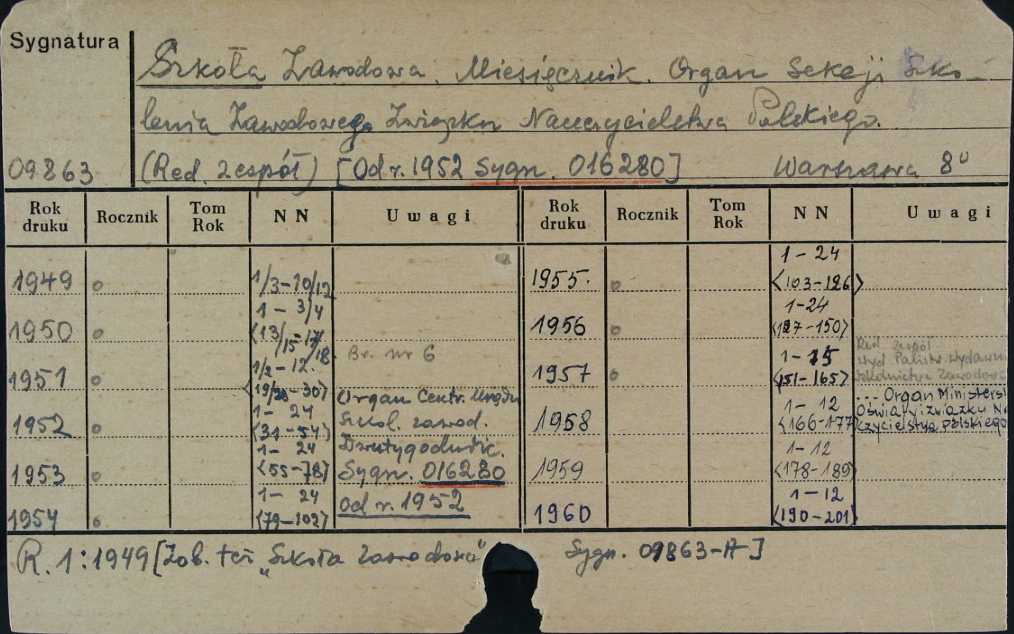 Sygnatura
Szkoła Zawodowa. Miesięcznik. Organ Sekcji Szko-
lenia Zawodowego Związku Nauczycielstwa Polskiego.
09863 (Red. zespół) [Od r. 1952 Sygn. 016280] Warszawa 8°
Rok druku Rocznik Tom Rok NN Uwagi Rok druku Rocznik Tom Rok NN Uwagi
1949 1/3-10/12 1955. 1-24
<103-126>
1950 1-3/4 1956 1-24
<13/15-17/18> <127-150>
Br. nr 6
1951 1/2-12. 1957 1-15 Red. zespół
<19/20-30> <151-165> Wyd. Państw. Wydawn.
Szkolnictwa Zawodow
1952 1-24 Organ Centr. Urzędu 1958 1-12 ... Organ Ministers
<31-54> Szkol. zawod. <166-177> Oświaty i Związku Na
Dwutygodnik. czycielstwa Polskiego
1953 1-24 1959 1-12
<55-78> Sygn. 016280 <178-189>
1954 1-24 od r. 1952 1960 1-12
<79-102> <190-201>
R. 1:1949 [Zob. też "Szkoła Zawodowa" Sygn. 09863-A]